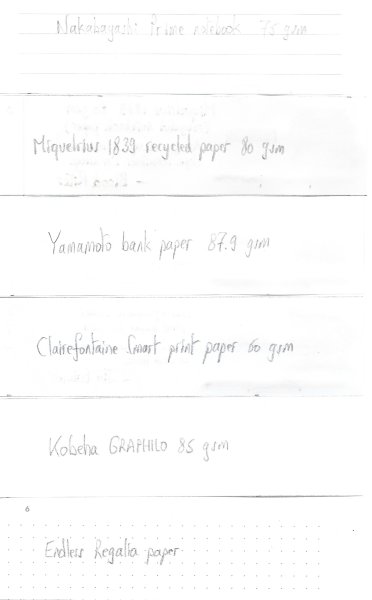 Nakabayashi Prime notebook 75 gsm
Miquelrius 1839 recycled paper 80 gsm
Yamamoto bank paper 87.9 gsm
Clairefontaine Smart print paper 60 gsm
Kobeha GRAPHILO 85 gsm
6
Endless Regalia paper